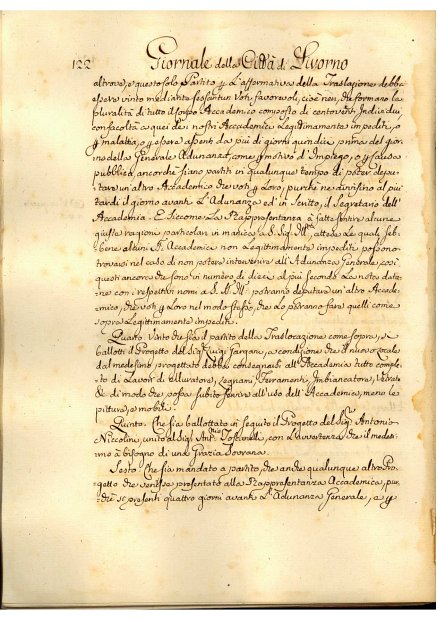 122 Giornale della Città di Livorno
altrove, e questo solo Partito p. l'affermativa della Traslazione debba
essere vinto mediante sessantun Voti favorevoli, cioè neri, che formano la
pluralità di tutto il Corpo Accademico composto di centoventi Individui
con facoltà a quei de nostri Accademici Legittimamente impediti, o
p. malattia, o p. essere assenti da più di giorni quindici prima del gior
no della Generale Adunanza, come p. motivo d'Impiego, o p. causa
pubblica, ancorchè siano partiti in qualunque tempo di poter depu-
tare un'altro Accademico che voti p. Loro, purchè ne avvisino al più
tardi il giorno avanti L'Adunanza ed' in Scritto, il Segretario dell'
Accademia. E siccome La Rappresentanza à fatte sentire alcune
giuste ragioni particolari in materia a S. Sig. Ill. attese Le quali seb-
bene alcuni SS. Accademici non Legittimamente impediti possono
trovarsi nel caso di non potere intervenire all'Adunanza Generale, così
questi ancora che sono in numero di dieci al più secondo La nota data-
ne con i respettivi nomi a S. S. Ill. potranno deputare un'altro Accade-
mico, che voti p. Loro nel modo stesso, che Lo potranno fare quelli come
sopra Legittimamente impediti.
Quarto. Vinto che sia il partito della Traslocazione come sopra, si
ballotti il Progetto del Sig. Luigi Gargani, a condizione che il nuovo locale
dal medesimo progettato debba consegnarsi all'Accademia tutto comple-
to di Lavori di Muratore, Legnami, Ferramenti, Imbiancatore, Vetrate
& di modo che, possa subito servire all'uso dell'Accademia, meno le
pitture, e mobilia.
Quinto. Che sia ballottato in seguito il Progetto del Sig. Antonio
Niccolini, unito al Sig. Ant. Toscanelli, con L'avvertenza che il medesi-
mo à bisogno di una Grazia Sovrana.
Sesto. Che sia mandato a partito, che anche qualunque altro Pro-
getto che venisse presentato alla Rappresentanza Accademica, pur-
chè si presenti quattro giorni avanti L'Adunanza Generale, e p.